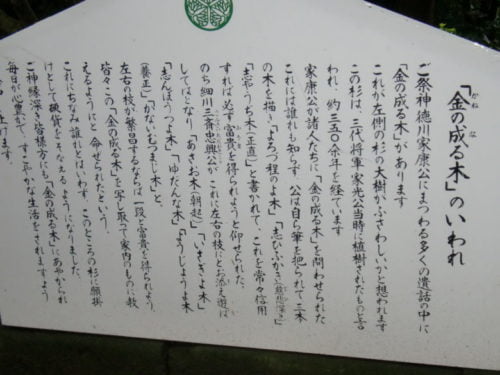 「金の成る木」のいわれ
かね な き
ご祭神徳川家康公にまつわる多くの遺話の中に
「金の成る木」があります
これが左側の杉の大樹がふさわしいかと想われます
この杉は、三代将軍家光公当時に植樹されたものと言
われ、約三五〇余年を経ています
家康公が諸人たちに「金の成る木」を問わせられた
これには誰れも知らず、公は自ら筆を把られて二本
の木を描き「よろづ程のよ木」「志ひふかき(慈悲深き)」
「志やうぢ木(正直)」と書かれて、これを常々信用
すれば必ず富貴を得られようと仰せられた、
のち細川三斉忠興公が これに左右の枝にとお添え遊ば
してはとなり「あさお木(朝起)」「いさぎよ木」
「志んぼうつよ木」「ゆだんな木」「ようじょうよ木
(養正)」「かないむつまじ木」と、
左右の枝が繁昌するならば一段と富貴を得られよう、
皆々この「金の成る木」を写し取って家内のものに教
えるようにと 命せられたという、
これにちなみ誰れとはいわず、このところの杉に願掛
けとして硬貨をそなえるようになりました、
ご神縁深き皆様方にも「金の成る木」にあやかられ
毎日が心豊で、すこやかな生活をされますよう